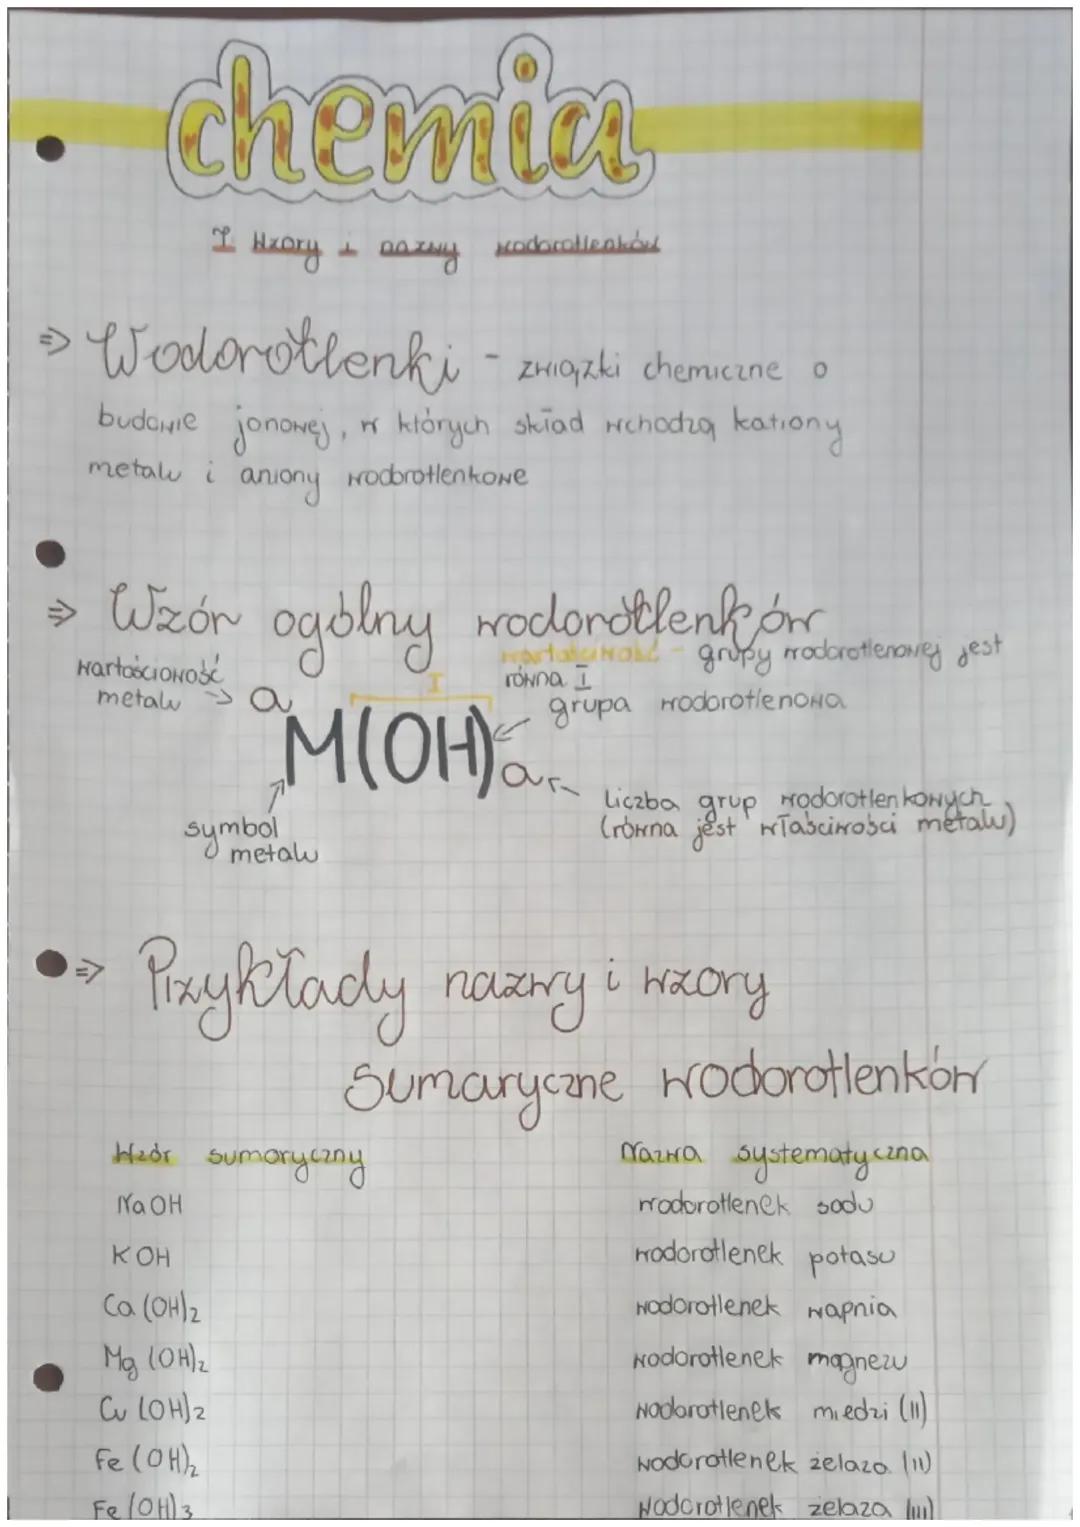 chemia
I Wzory i nazwy wodorotlenków
⇒ Wodorotlenki - związki chemiczne o
budowie jonowej, w których skład wchodzą kationy
metalu i aniony wodorotlenkowe
⇒ Wzór ogólny wodorotlenków
wartościowość - grupy wodorotlenowej jest
równa I
wartościowość
metalu → a
I
grupa wodorotlenowa
M(OH)a
liczba grup wodorotlenkowych
(równa jest właściwości metalu)
symbol
metalu
⇒ Przykłady nazwy i wzory
sumaryczne wodorotlenków
Wzór sumaryczny Nazwa systematyczna
NaOH wodorotlenek sodu
KOH wodorotlenek potasu
Ca(OH)2 wodorotlenek wapnia
Mg(OH)2 wodorotlenek magnezu
Cu(OH)2 wodorotlenek miedzi (II)
Fe(OH)2 wodorotlenek żelaza (II)
Fe(OH)3 wodorotlenek żelaza (III)